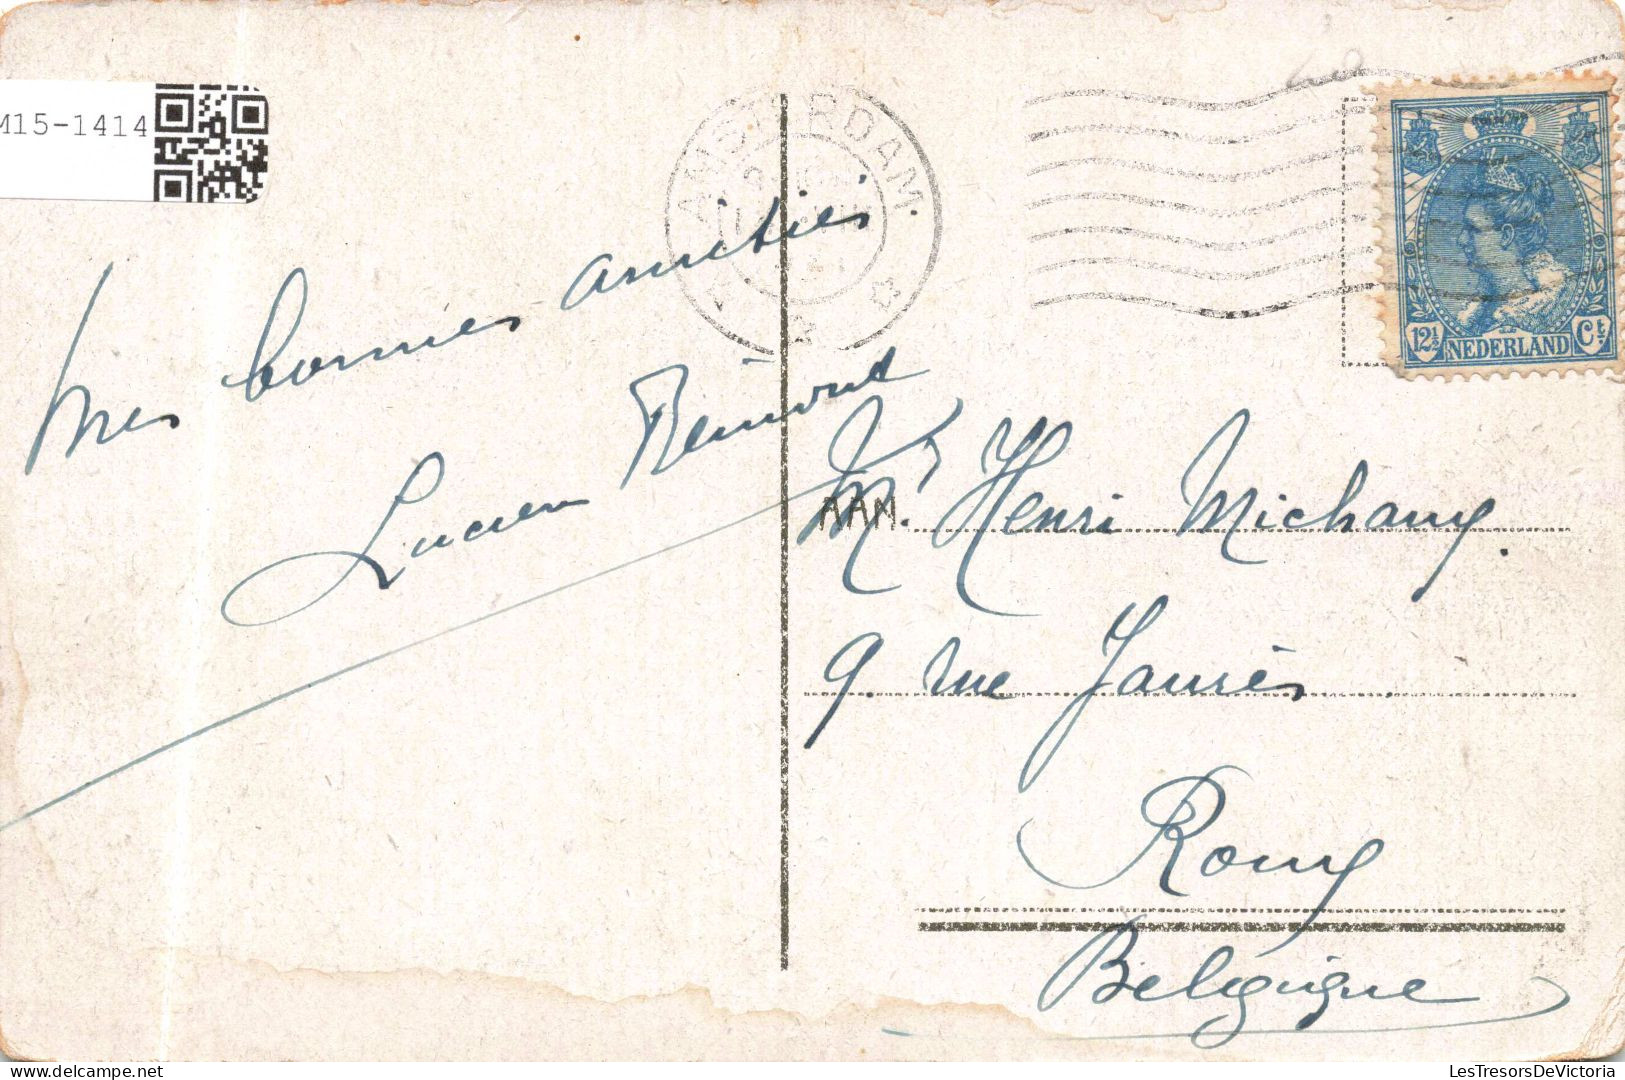 M15-1414
AMSTERDAM.
12½ NEDERLAND Ct
Mes bonnes amitiés
Lucien Rémont
AAN
Mr. Henri Michaux.
9. rue Jaurès
Roux
Belgique
LesTresorsDeVictoria